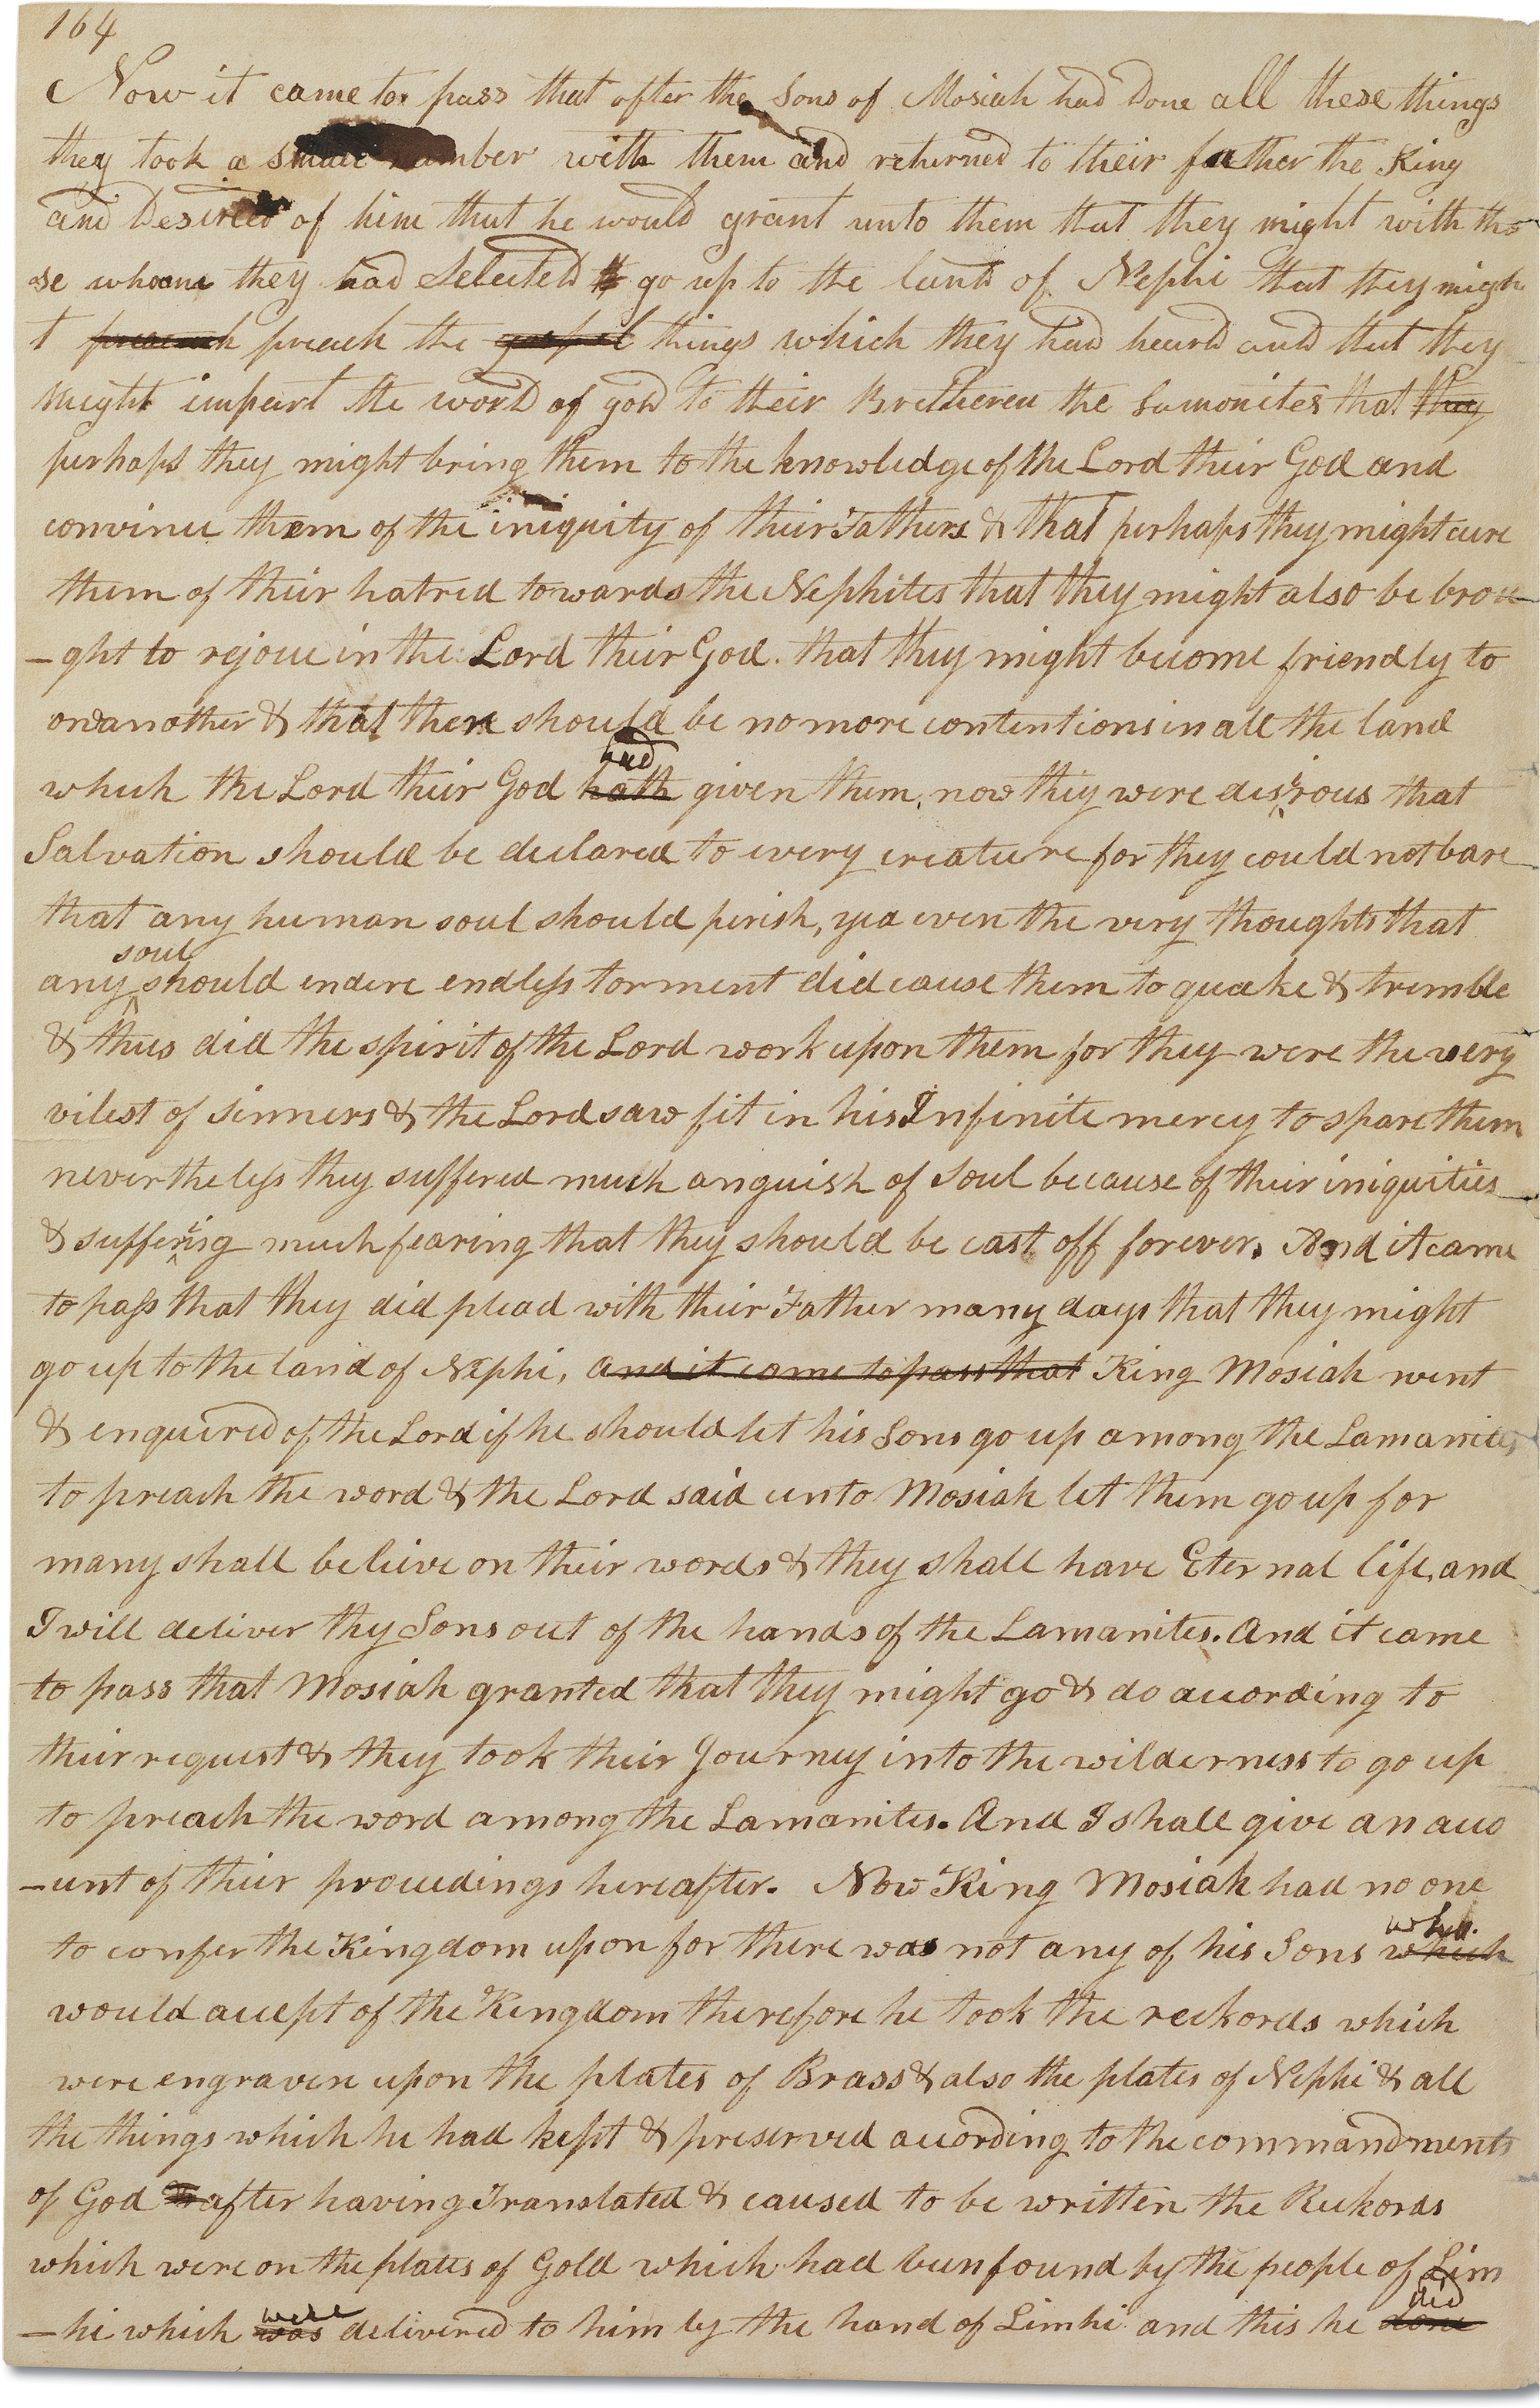 164
Now it came to pass that after the Sons of Mosiah had Done all these things
they took a small number with them and returned to their father the King
and Desired of him that he would grant unto them that they might with tho
se whom they had Selected go up to the land of Nephi that they migh
t preach preach the gospel things which they had heard and that they
might impart the word of god to their Bretheren the Lamonites that they
perhaps they might bring them to the knowledge of the Lord their God and
convince them of the iniquity of their Fathers & that perhaps they might cure
them of their hatred towards the Nephites that they might also be brou
-ght to rejoice in the Lord their God. that they might become friendly to
oneanother & that there should be no more contentions in all the land
had
which the Lord their God hath given them, now they were desirous that
Salvation should be declared to every creature for they could not bare
that any human soul should perish, yea even the very thoughts that
soul
any should endure endless torment did cause them to quake & tremble
& thus did the spirit of the Lord work upon them for they were the very
vilest of sinners & the Lord saw fit in his Infinite mercy to spare them
nevertheless they suffered much anguish of soul because of their iniquities
& suffering much fearing that they should be cast off forever. And it came
to pass that they did plead with their Father many days that they might
go up to the land of Nephi, and it came to pass that King Mosiah went
& enquired of the Lord if he should let his Sons go up among the Lamanites
to preach the word & the Lord said unto Mosiah let them go up for
many shall believe on their words & they shall have Eternal life, and
I will deliver thy Sons out of the hands of the Lamanites. And it came
to pass that Mosiah granted that they might go & do acording to
their request & they took their Journey into the wilderness to go up
to preach the word among the Lamanites. And I shall give an acco
-unt of their proceedings hereafter. Now King Mosiah had no one
who.
to confer the Kingdom upon for there was not any of his Sons which
would accept of the Kingdom therefore he took the reckords which
were engraven upon the plates of Brass & also the plates of Nephi & all
the things which he had kept & preserved acording to the commandments
of God after having Translated & caused to be written the Reckords
which were on the plates of Gold which had been found by the people of Lim
were did
-hi which was delivered to him by the hand of Limhi and this he done